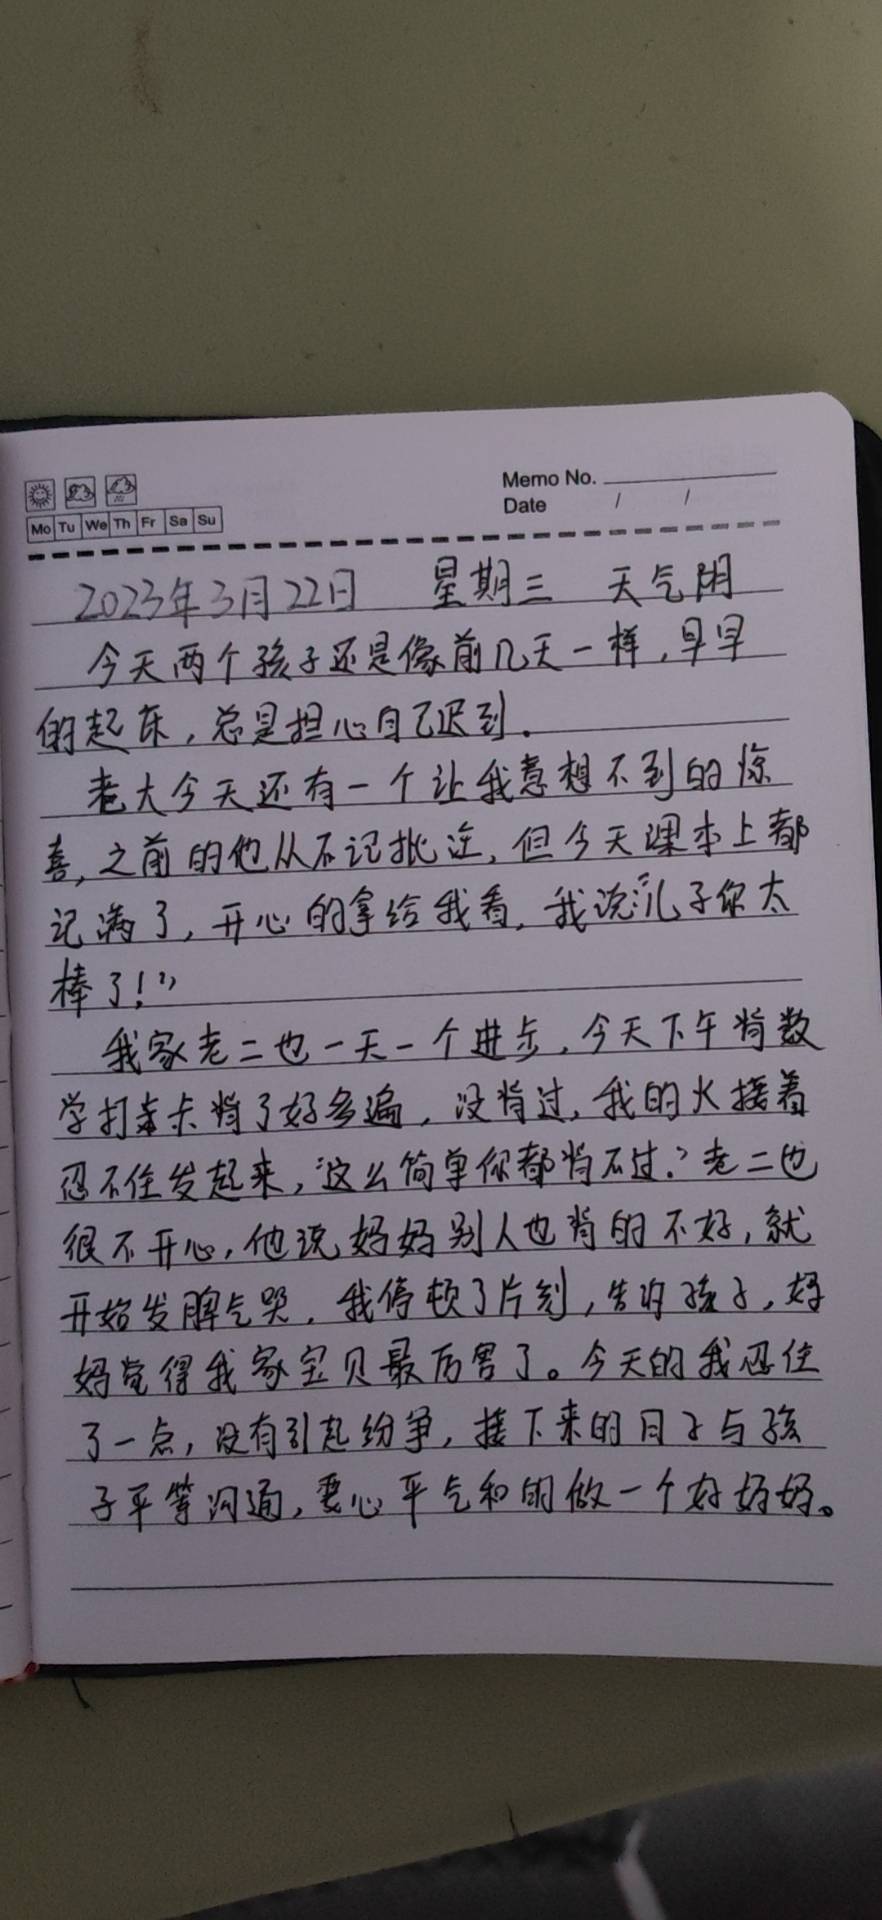 Memo No.
Date / /
Mo Tu We Th Fr Sa Su
2023年3月22日 星期三 天气阴
今天两个孩子还是像前几天一样,早早
的起床,总是担心自己迟到.
老大今天还有一个让我意想不到的惊
喜,之前的他从不记批注,但今天课本上都
记满了,开心的拿给我看,我说:“儿子你太
棒了!”
我家老二也一天一个进步,今天下午背数
学打卡背了好多遍,没背过,我的火接着
忍不住发起来,“这么简单你都背不过?”老二也
很不开心,他说妈妈别人也背的不好,就
开始发脾气哭,我停顿了片刻,告的孩子,妈
妈觉得我家宝贝最厉害了。今天的我忍住
了一点,没有引起纷争,接下来的日子与孩
子平等沟通,要心平气和的做一个好妈妈。